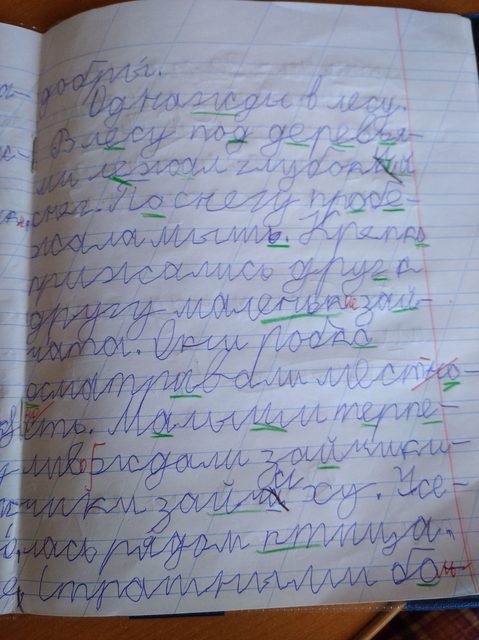 добры.
Однажды в лесу.
В лесу под деревья-
ми лежал глубокий
снег. По снегу пробе-
жала мышь. Крепко
прижались друг к
другу маленькие зай-
чата. Они робко
осматривали местно-
сть. Малыши терпе-
ливо ждали зайчики-
чики зайчиху. Усе-
лась рядом птица.
Страшными бо